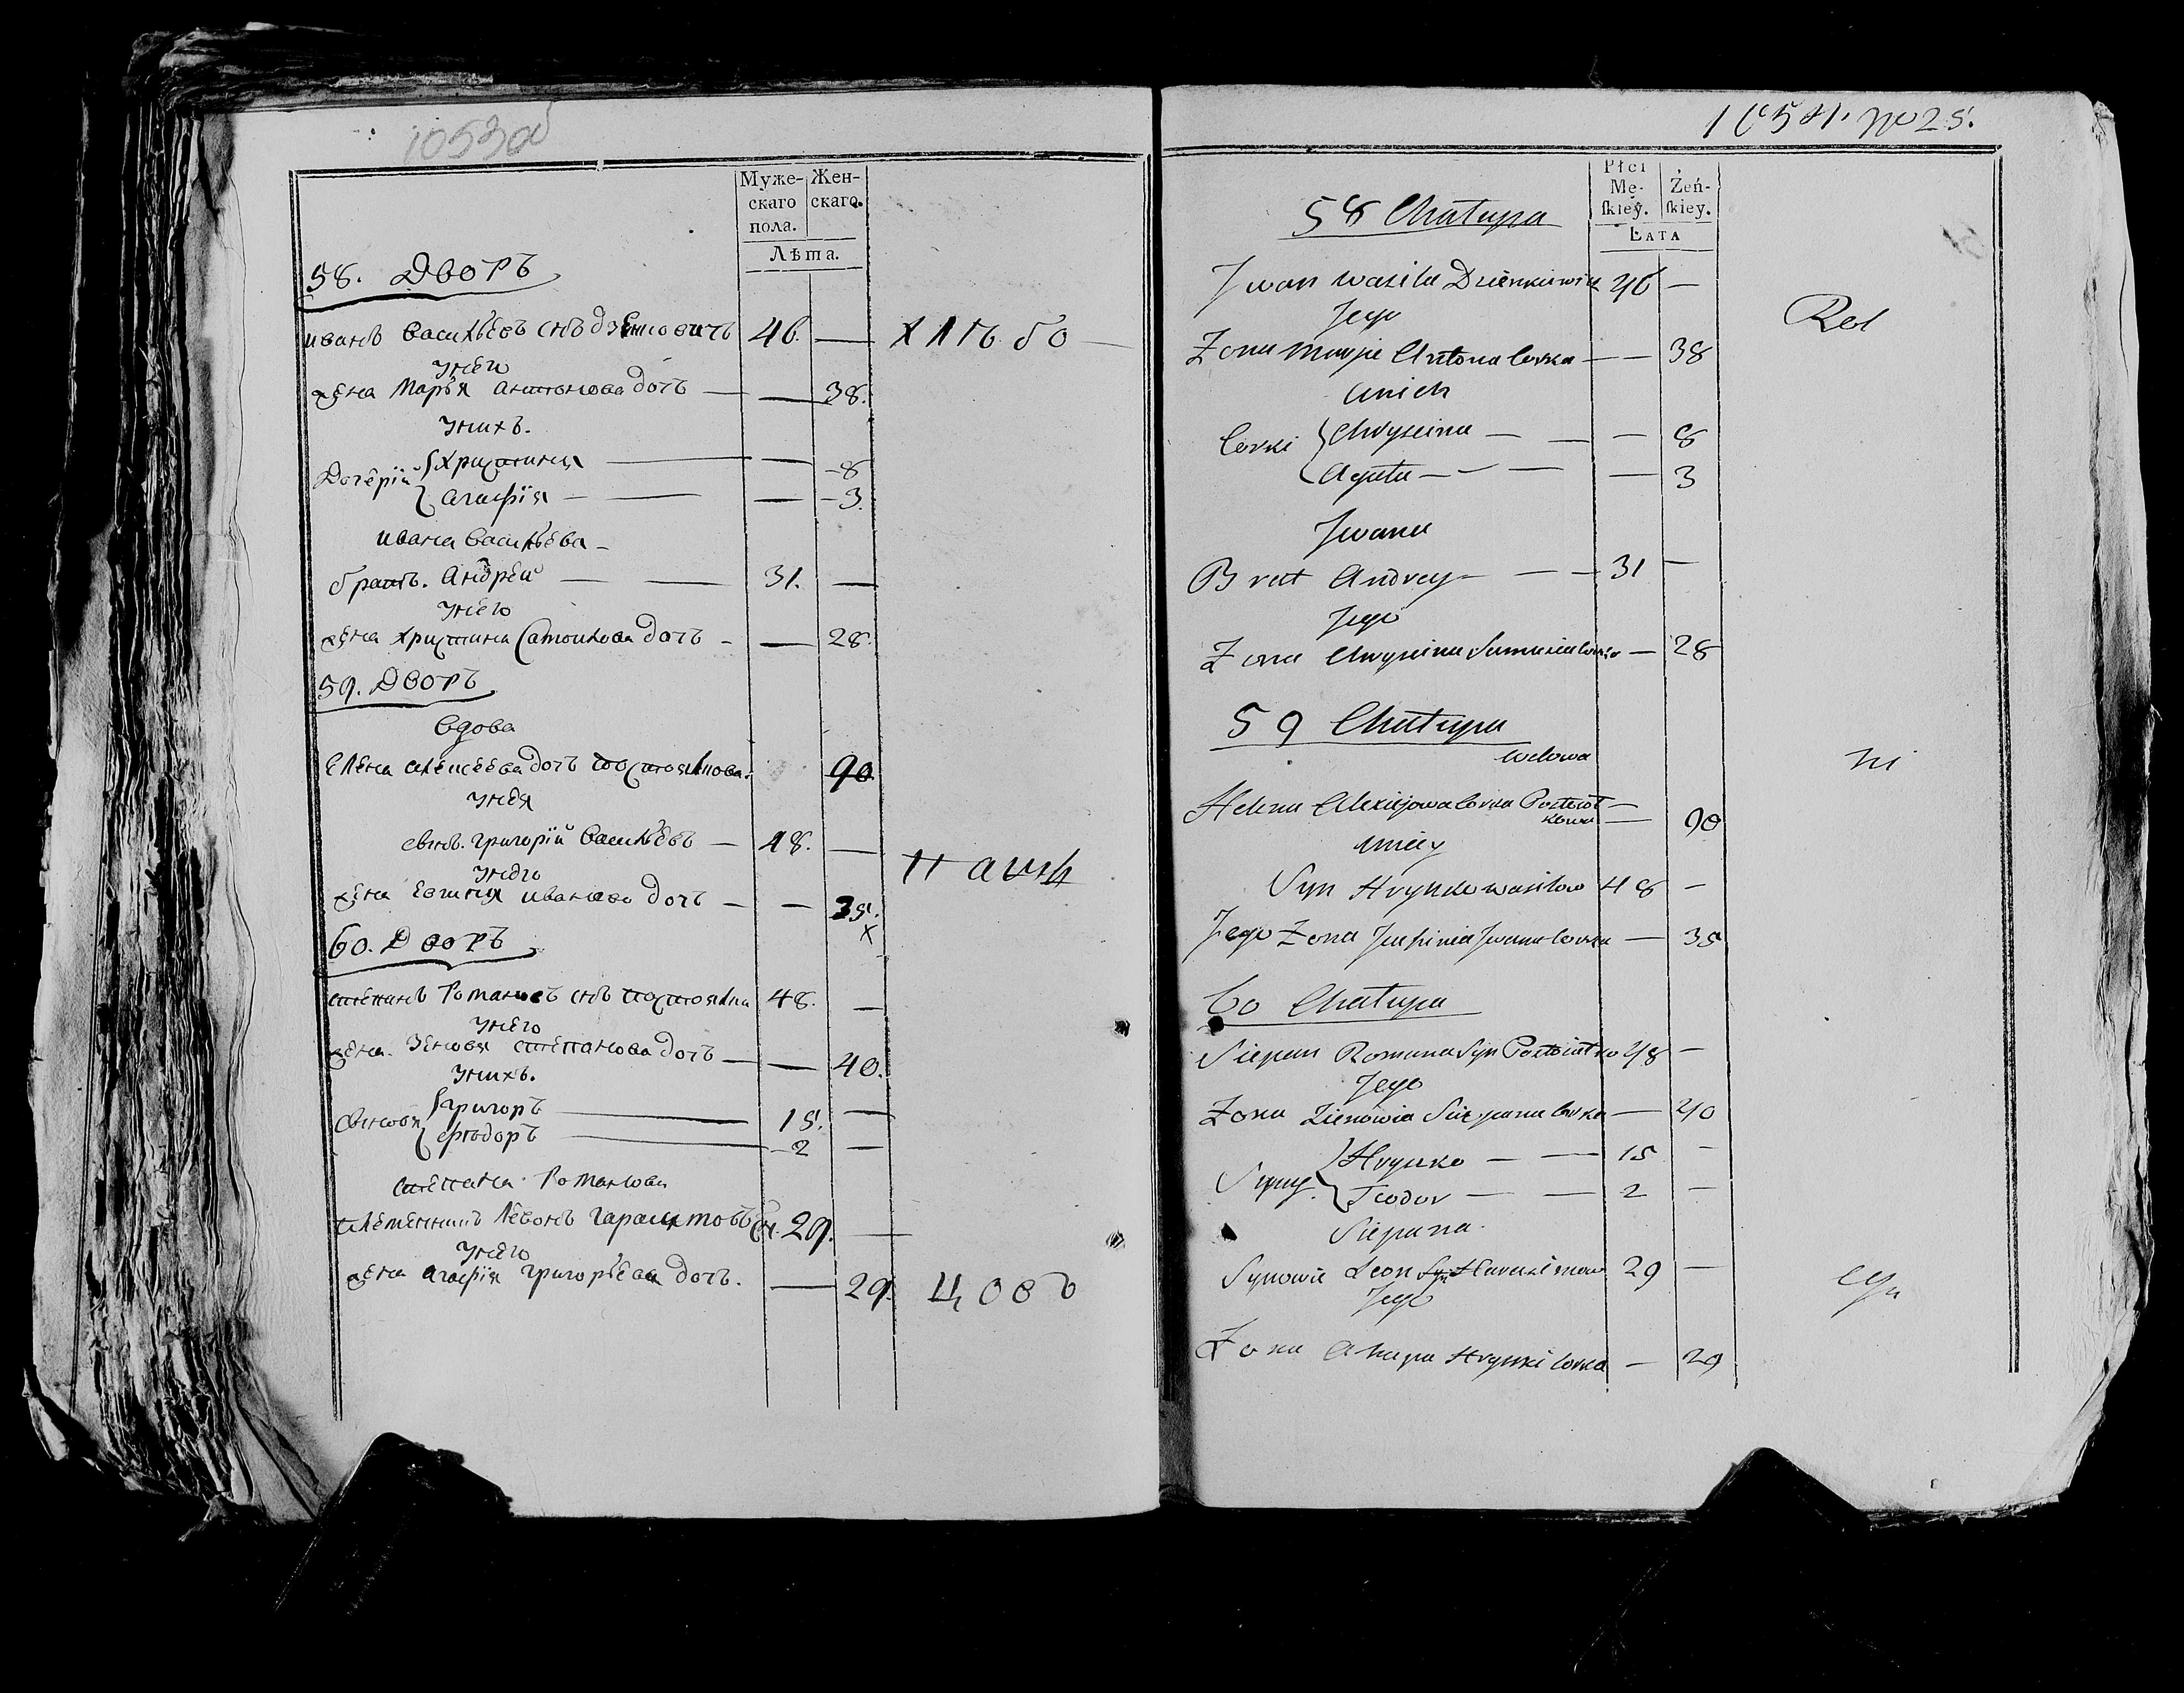 1053об
Муже-
скаго
пола.
Жен-
скаго.
Лѣта.
58. Дворъ
иванъ васильевъ снъ дзенковичъ 46. —
унего
жена марья антонова дочь — — 38.
унихъ.
дочерїи { христина — — 8
агафїя — — 3.
ивана васильева
братъ. андрей — 31. —
унего
жена христина самойлова дочь — — 28.
59. Дворъ
вдова
елена алексеева дочь постоялкова. 90
унея
сынъ. григорїй васильевъ — 48. —
унего
жена евгиня иванова дочь — — 35.
х
60. Дворъ
степанъ романовъ снъ постоялка 48. —
унего
жена. зеновя степанова дочь — — 40.
унихъ.
сыновя { григоръ — 15. —
феодоръ — 2 —
степана романова
племенникъ левонъ гарасимовъ сн. 29. —
унего
жена агафїя григорьева дочь. — 29.
хлѣбо —
паш
цовъ
1054. no 25.
Płci
Mę-
skiey.
Żeń-
skiey.
Lata
58 Chałupa
Jwan Wasila Dzienkiewicz 46 —
Jego
Zona Marya Antona Corka — — 38
Unich
Corki { Chrystina — — — 8
Agata — — — 3
Jwana
Brat Andrey — — 31 —
Jego
Zona Chrystina Samuela Corka — 28
59 Chałupa
Wdowa
Helena Alexiejowa Corka Postoiał—
kowa — 90
Uniey
Syn Hrynko Wasilow 48 —
Jego Zona Jewhinia Jwana Corka — 35
60 Chałupa
Stepan Romana Syn Postoiałko 48 —
Jego
Zona Zienowia Stepana Corka — 40
Syny. { Hrynko — — 15 —
Teodor — — 2 —
Stepana
Synowiec Leon Syn Harasimow 29 —
Jego
Zona Ahapa Hrynki Corka — 29
Rol
ni
cy